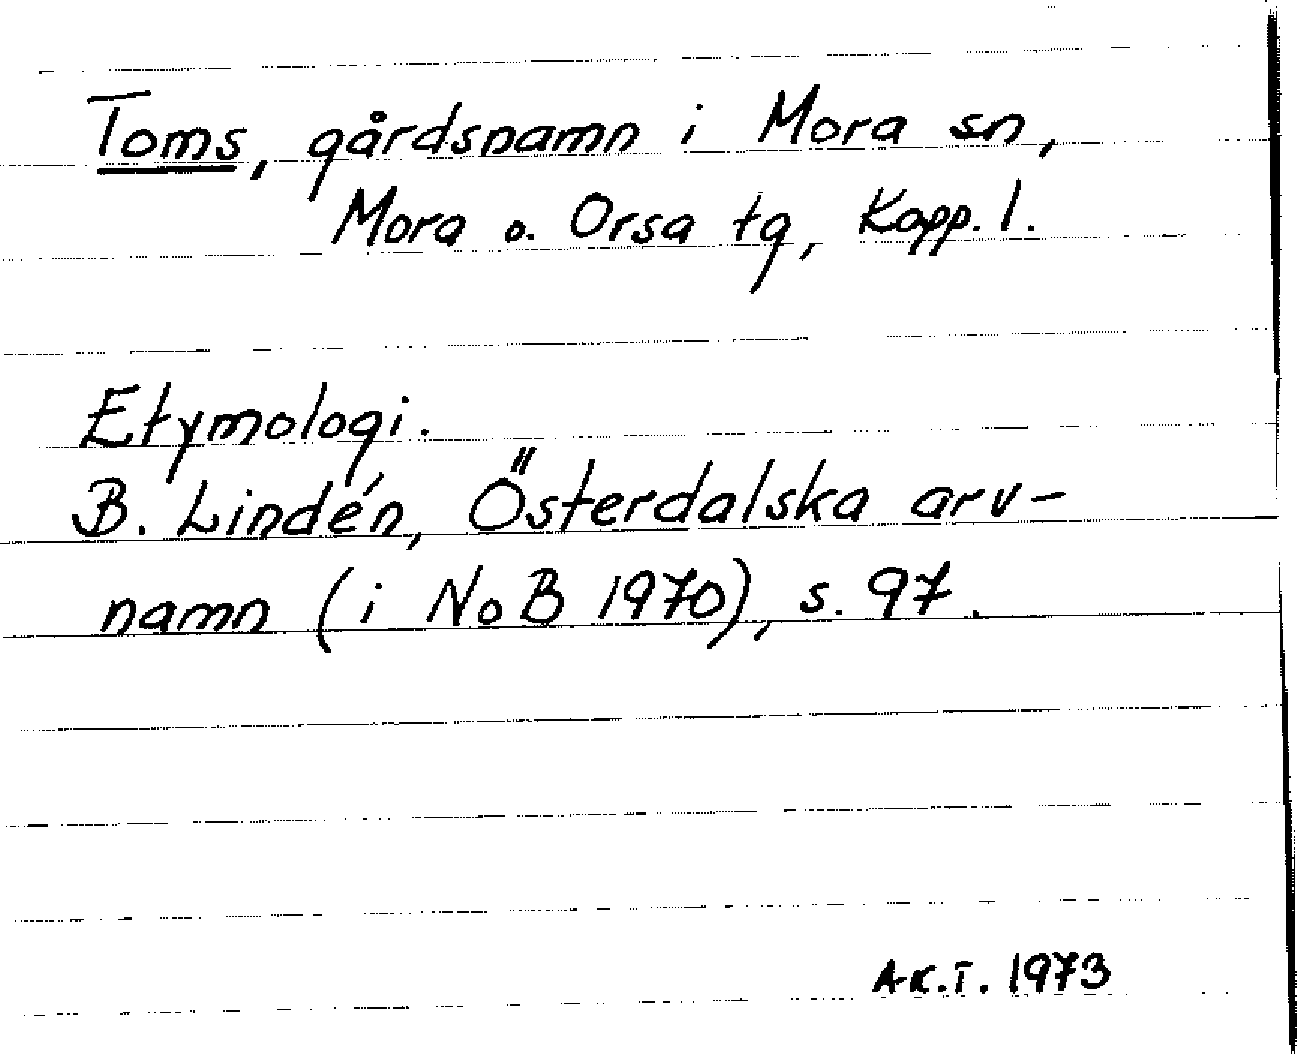 Toms, gårdsnamn i Mora sn,
Mora o. Orsa tg, Kopp. l.
Etymologi.
B. Lindén, Österdalska arv-
namn (i NoB 1970), s. 97.
A-K.T. 1973